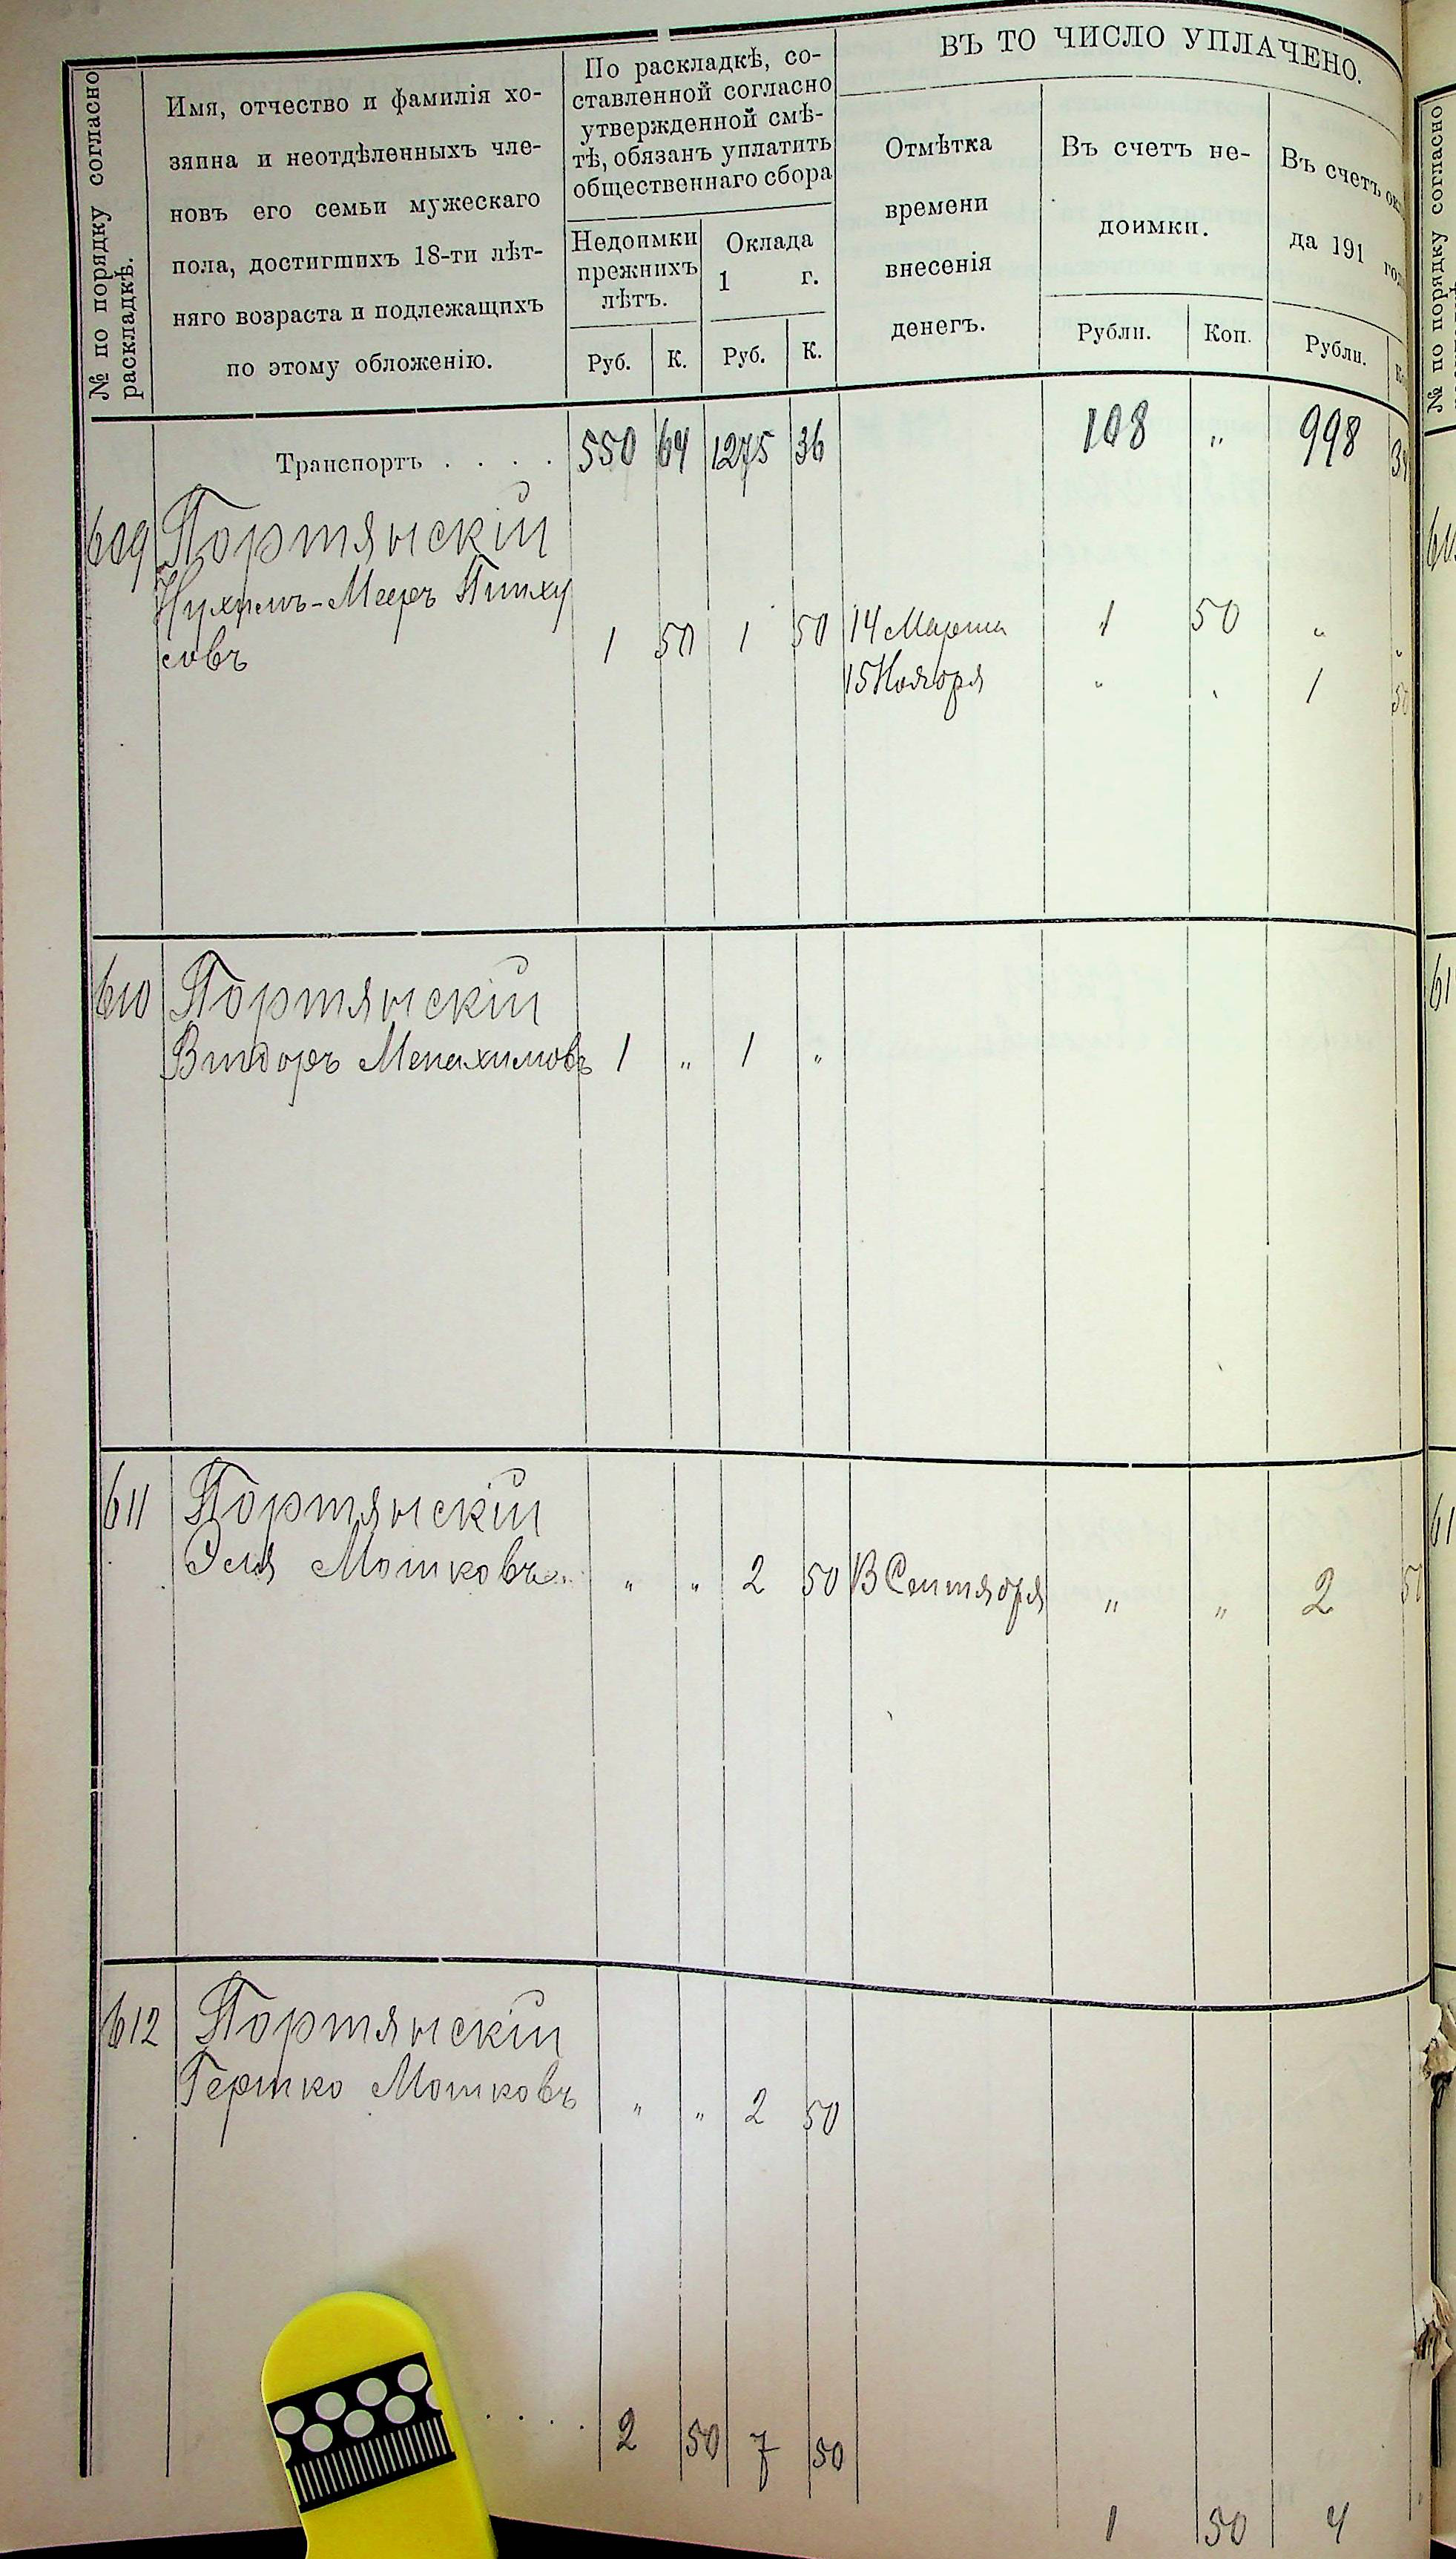 № по порядку согласно
раскладкѣ.
Имя, отчество и фамилія хо-
зяина и неотдѣленныхъ чле-
новъ его семьи мужескаго
пола, достигшихъ 18-ти лѣт-
няго возраста и подлежащихъ
по этому обложенію.
По раскладкѣ, со-
ставленной согласно
утвержденной смѣ-
тѣ, обязанъ уплатить
общественнаго сбора
Недоимки
прежнихъ
лѣтъ.
Оклада
1 г.
Руб. К. Руб. К.
ВЪ ТО ЧИСЛО УПЛАЧЕНО.
Отмѣтка
времени
внесенія
денегъ.
Въ счетъ не-
доимки.
Рубли. Коп.
Въ счетъ
да 191
Рубли.
№ по порядку согласно
Транспортъ . . . . 550 64 1275 36 108 „ 998
609 Портянскій
Нухимъ-Мееръ Пинху
совъ 1 50 1 50 14 Марта 1 50 „ „
15 Ноября „ „ 1 50
610 Портянскій
Вигдоръ Менахимовъ 1 „ 1 „
611 Портянскій
Эля Мошковъ „ „ 2 50 13 Сентября „ „ 2 50
612 Портянскій
Гершко Мошковъ „ „ 2 50
. . . . 2 50 7 50
1 50 4